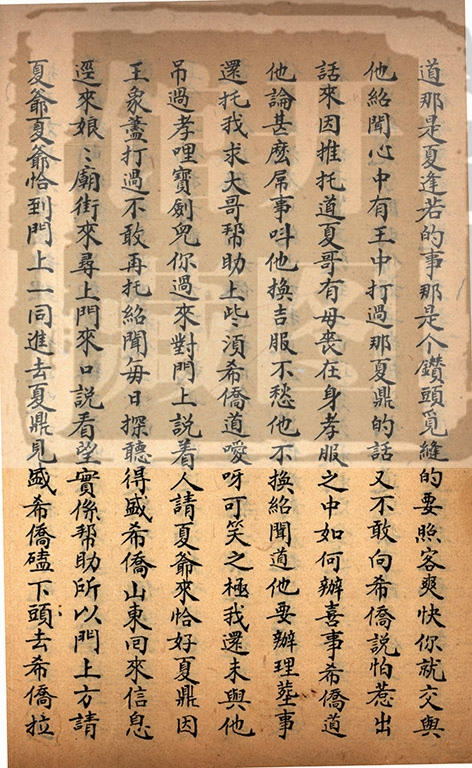 道那是夏逢若的事那是个鑽頭覓縫的要照客爽快你就交與
他紹聞心中有王中打過那夏鼎的話又不敢向希僑說怕惹出
話來因推托道夏哥有母喪在身孝服之中如何辦喜事希僑道
他論甚麽屌事呌他換吉服不愁他不換紹聞道他要辦理塟事
還托我求大哥帮助上些須希僑道噯呀可笑之極我還未與他
吊過孝哩寶劍兒你過來對門上說着人請夏爺來恰好夏鼎因
王象藎打過不敢再托紹聞每日探聽得盛希僑山東回來信息
逕來娘〻廟街來尋上門來口說看望實係帮助所以門上方請
夏爺夏爺恰到門上一同進去夏鼎見盛希僑磕下頭去希僑拉